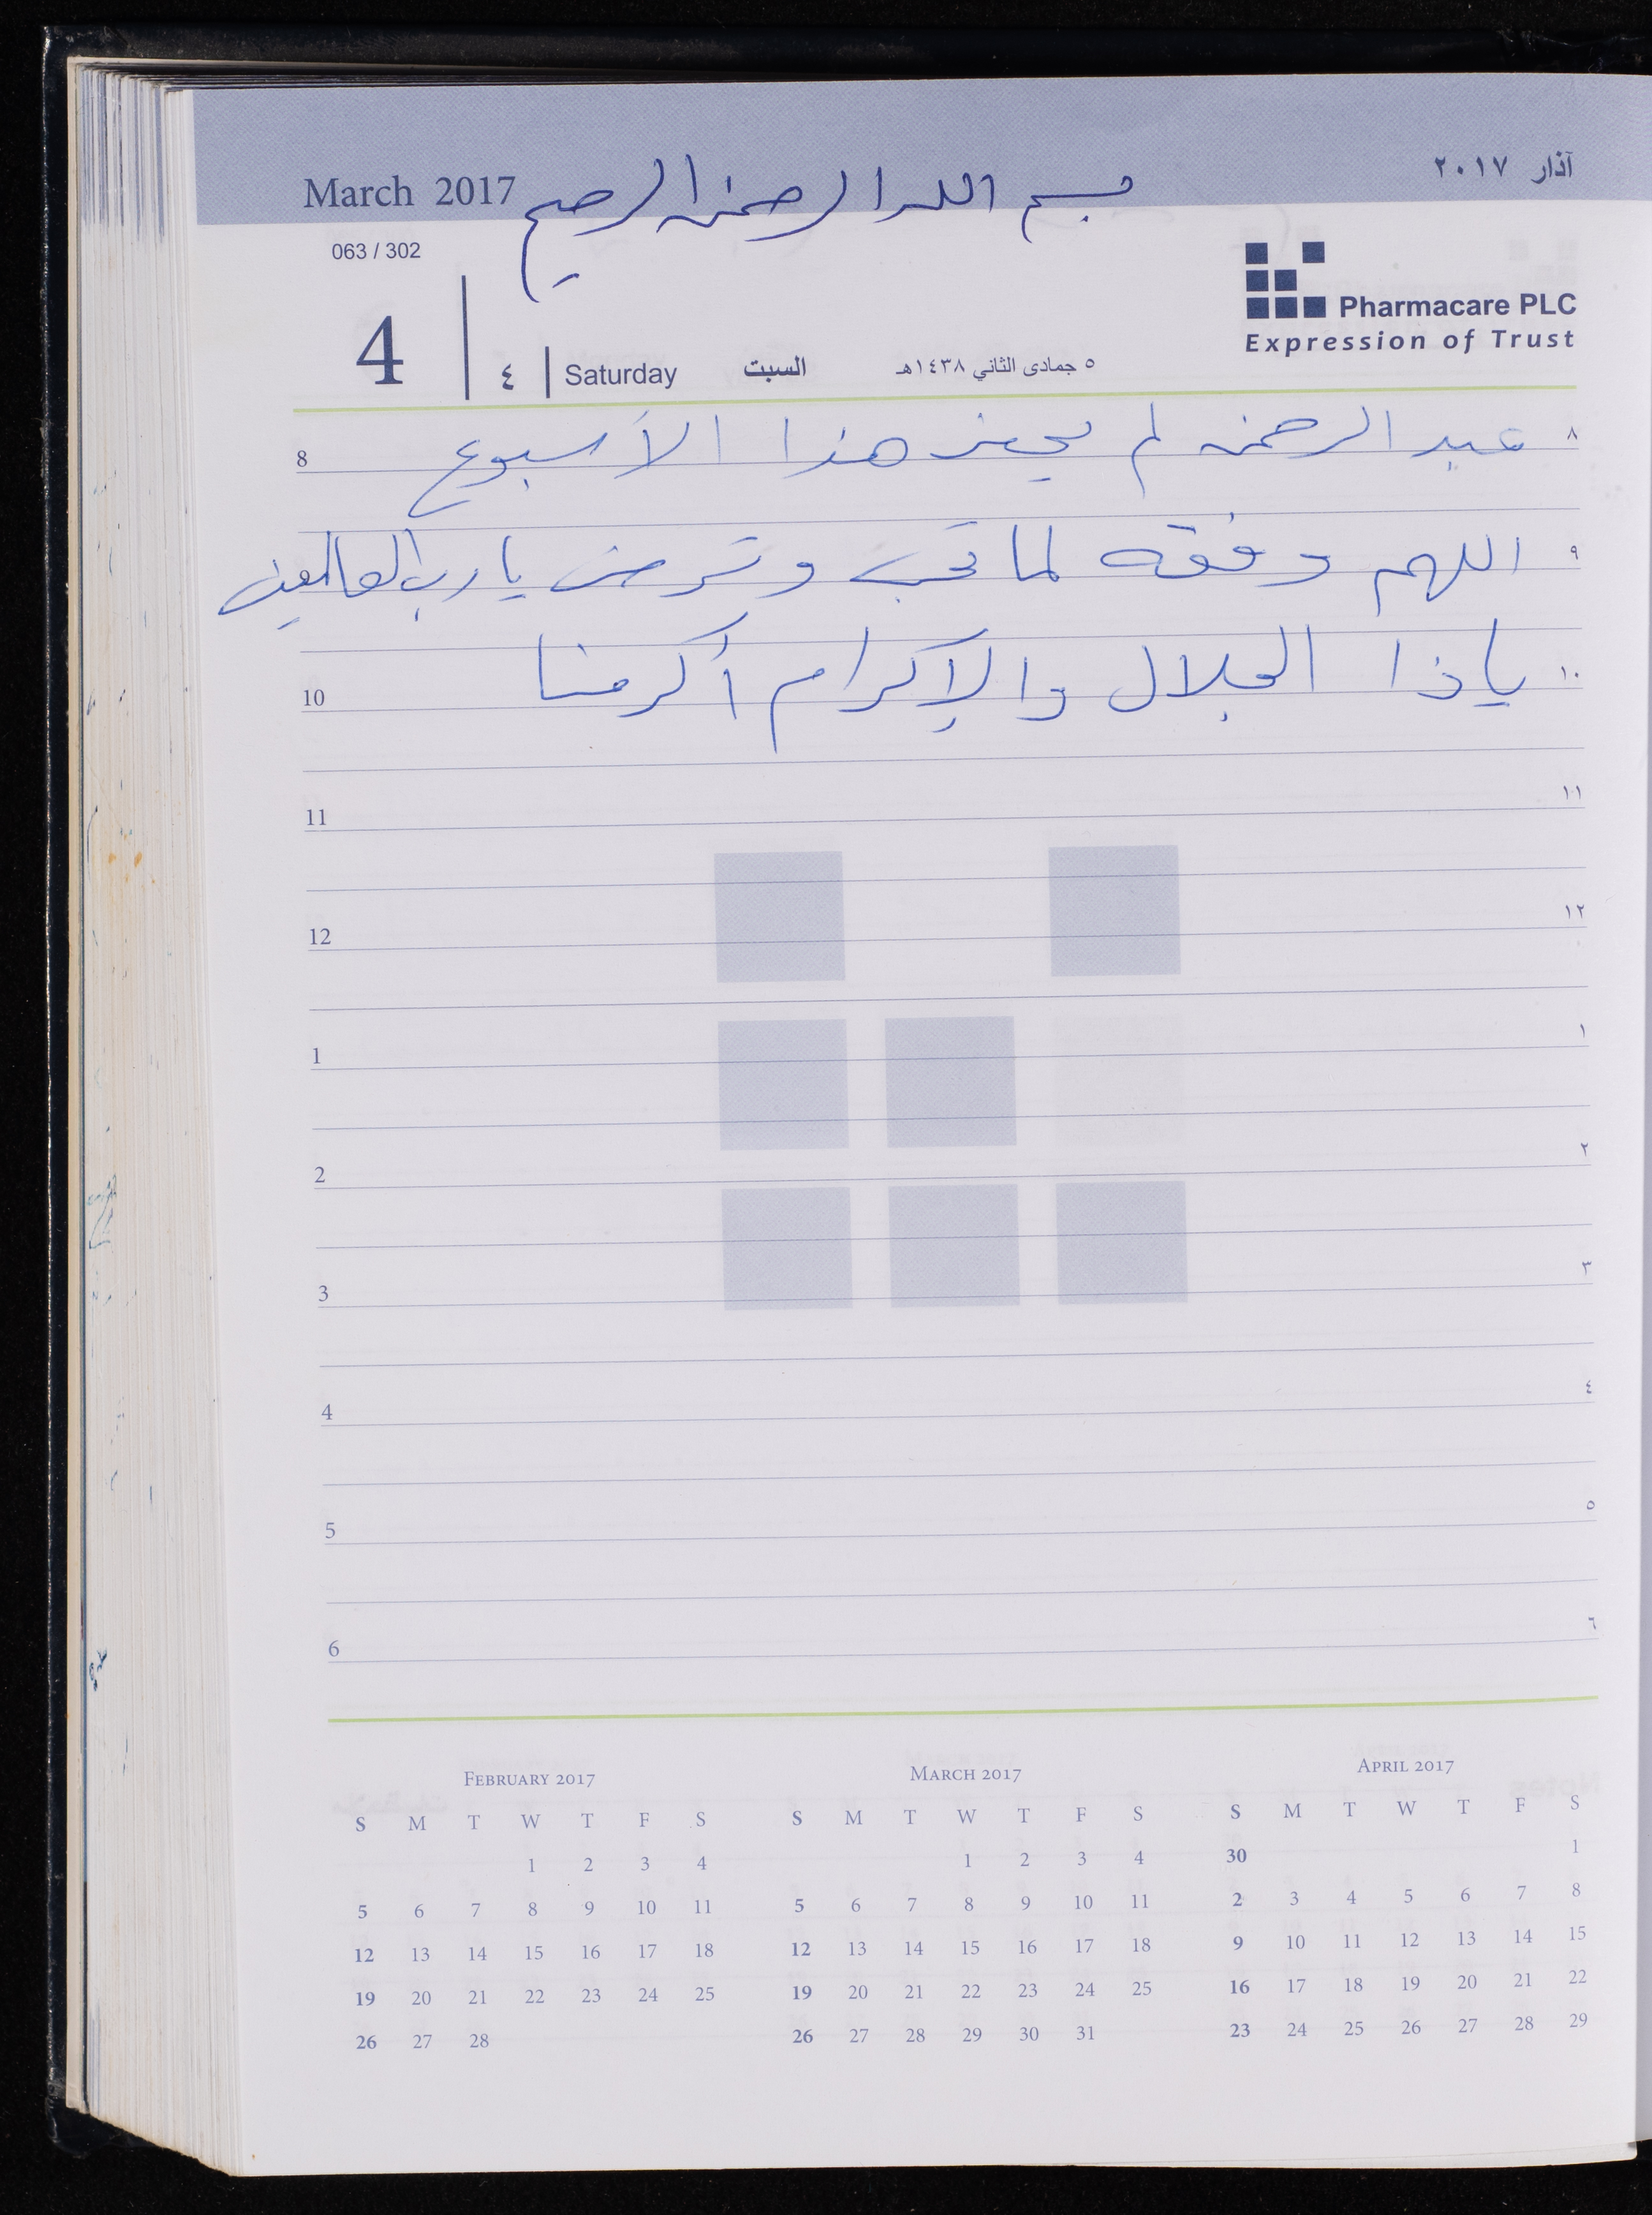 آذار ٢٠١٧
March 2017
بسم الله الرحمن الرحيم
063 / 302
Pharmacare PLC
Expression of Trust
4 | ٤ | Saturday السبت ٥ جمادى الثاني ١٤٣٨هـ
8 عبد الرحمن لم يجئ هذا الأسبوع ٨
اللهم وفقه لما تحب وترضى يا رب العالمين ٩
10 ياذا الجلال والإكرام أكرمنا ١٠
11 ١١
12 ١٢
1 ١
2 ٢
3 ٣
4 ٤
5 ٥
6 ٦
FEBRUARY 2017
S M T W T F S
1 2 3 4
5 6 7 8 9 10 11
12 13 14 15 16 17 18
19 20 21 22 23 24 25
26 27 28
MARCH 2017
S M T W T F S
1 2 3 4
5 6 7 8 9 10 11
12 13 14 15 16 17 18
19 20 21 22 23 24 25
26 27 28 29 30 31
APRIL 2017
S M T W T F S
30 1
2 3 4 5 6 7 8
9 10 11 12 13 14 15
16 17 18 19 20 21 22
23 24 25 26 27 28 29